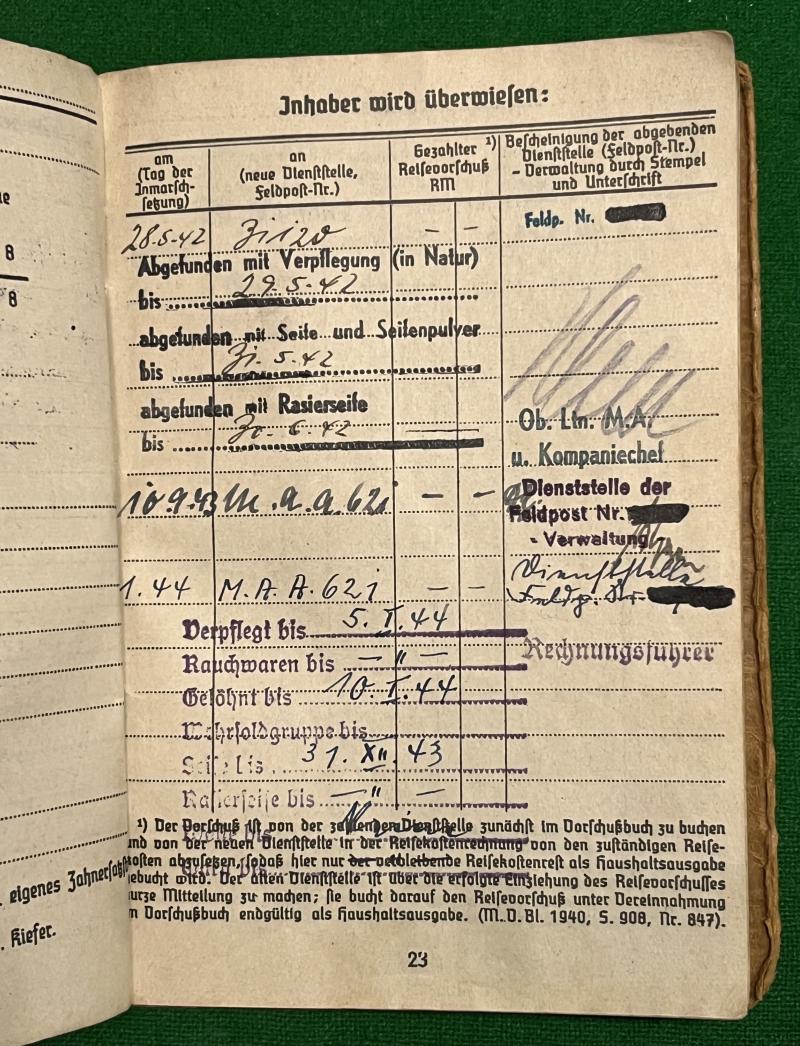 Inhaber wird überwiesen:
am
(Tag der
Inmarsch-
setzung)
an
(neue Dienststelle,
Feldpost-Nr.)
Gezahlter 1)
Reisevorschuß
RM
Bescheinigung der abgebenden
Dienststelle (Feldpost-Nr.)
- Verwaltung durch Stempel
und Unterschrift
28.5.42 — — Feldp. Nr.
Abgefunden mit Verpflegung (in Natur)
bis 29.5.42
abgefunden mit Seife und Seifenpulver
bis 5.42
abgefunden mit Rasierseife
bis 6.42
Ob. Ltn. M.A.
u. Kompaniechef
10.9.43 M.a.a. 621 — —
Dienststelle der
Feldpost Nr.
- Verwaltung
1.44 M.A.A. 621 — —
Dienststelle
Feldp. Nr.
Verpflegt bis 5.I.44
Rauchwaren bis — " —
Rechnungsführer
Gelöhnt bis 10.I.44
Wehrsoldgruppe bis
Seife bis 31.XII.43
Rasierseife bis — " —
1) Der Vorschuß ist von der zahlenden Dienststelle zunächst im Vorschußbuch zu buchen
und von der neuen Dienststelle in der Reisekostenrechnung von den zuständigen Reise-
kosten abzusetzen, sodaß hier nur der verbleibende Reisekostenrest als Haushaltsausgabe
gebucht wird. Der alten Dienststelle ist über die erfolgte Einziehung des Reisevorschusses
kurze Mitteilung zu machen; sie bucht darauf den Reisevorschuß unter Vereinnahmung
m Vorschußbuch endgültig als Haushaltsausgabe. (M.D.Bl. 1940, S. 908, Nr. 847).
23
8
8
eigenes Zahnersatz
Kiefer.